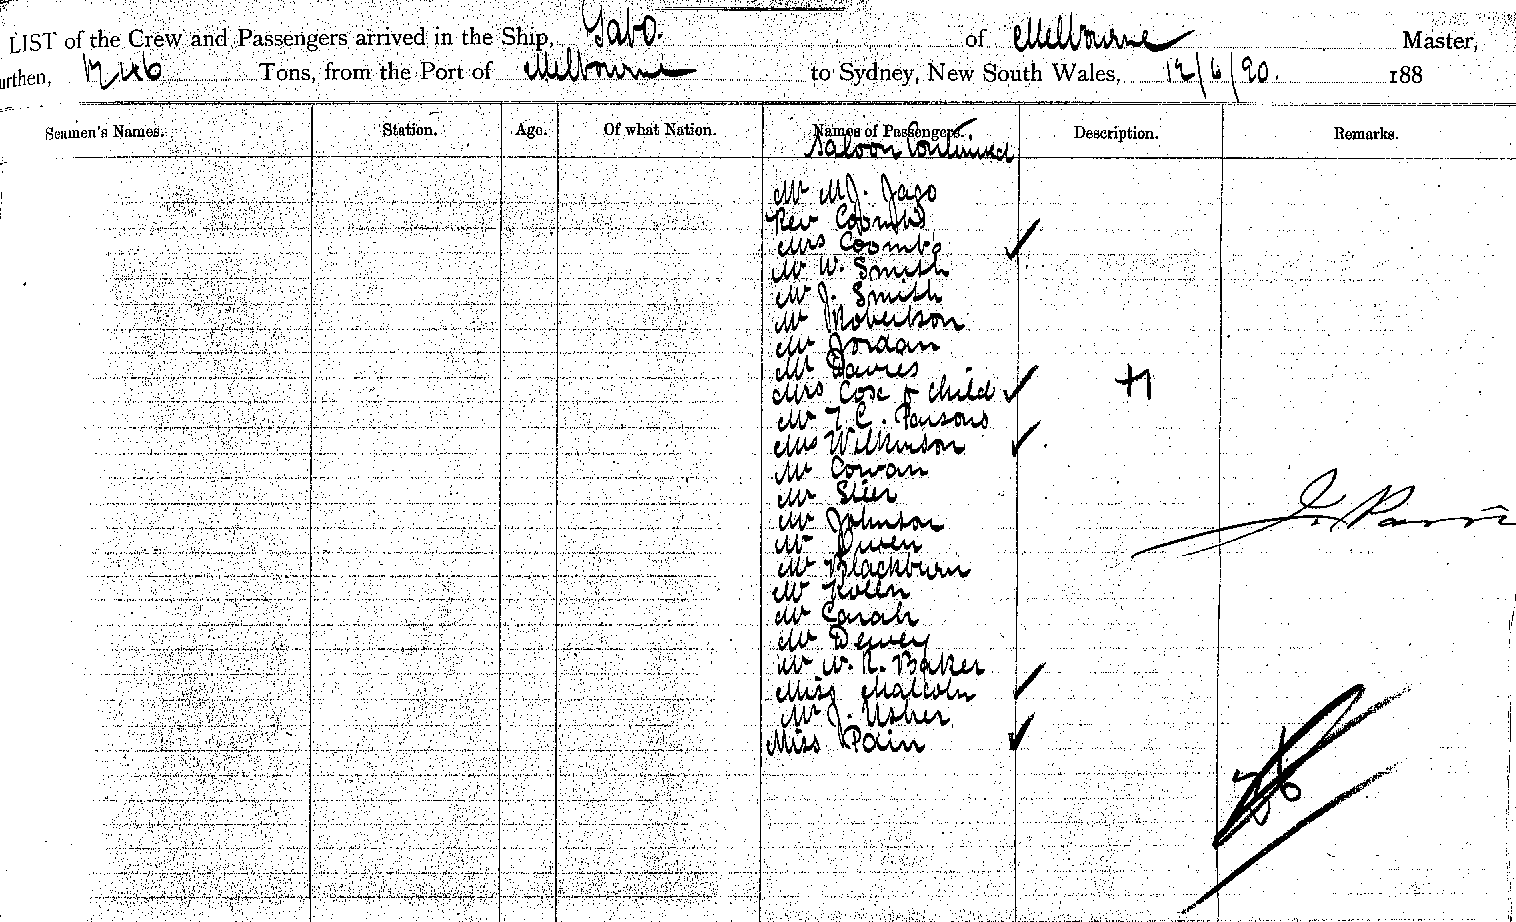 LIST of the Crew and Passengers arrived in the Ship, Gabo. of Melbourne Master,
urthen, Tons, from the Port of Melbourne to Sydney, New South Wales, 12/6/90. 188
Seamen's Names. Station. Age. Of what Nation. Names of Passengers. Description. Remarks.
Saloon Continued
Mr M.J. Jago
Rev Coombs
Mrs Coombs
Mr W. Smith
Mr J. Smith
Mr Robertson
Mr Jordan
Mr Davies
Mrs Cox & child +1
Mr T. C. Parsons
Mrs Wilkinson
Mr Cowan
Mr Steer
Mr Johnson
Mr Owen
Mr Blackburn
Mr
Mr Carah
Mr Dewey
Mr W. R. Baker
Miss Malcolm
Mr J. Usher
Miss Pain